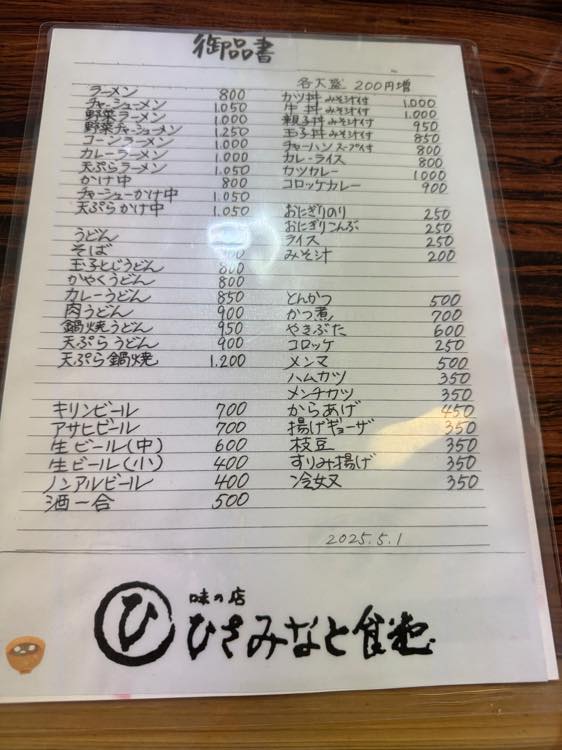 御品書
ラーメン 800
チャーシューメン 1.050
野菜ラーメン 1.000
野菜チャーシューメン 1.250
コーンラーメン 1.000
カレーラーメン 1.000
天ぷらラーメン 1.000
かけ中 800
チャーシューかけ中 1.050
天ぷらかけ中 1.050
うどん
そば
玉子とじうどん 800
かやくうどん 800
カレーうどん 850
肉うどん 900
鍋焼うどん 950
天ぷらうどん 900
天ぷら鍋焼 1.200
キリンビール 700
アサヒビール 700
生ビール(中) 600
生ビール(小) 400
ノンアルビール 400
酒一合 500
各大盛 200円増
カツ丼 みそ汁付 1.000
牛丼 みそ汁付 1.000
親子丼 みそ汁付 950
玉子丼 みそ汁付 850
チャーハン スープ付 800
カレーライス 800
カツカレー 1000
コロッケカレー 900
おにぎりのり 250
おにぎりこんぶ 250
ライス 250
みそ汁 200
とんかつ 500
かつ煮 700
やきぶた 600
コロッケ 250
メンマ 500
ハムカツ 350
メンチカツ 350
からあげ 450
揚げギョーザ 350
枝豆 350
すりみ揚げ 350
冷奴 350
2025.5.1
ひ 味の店
ひさみなと食堂